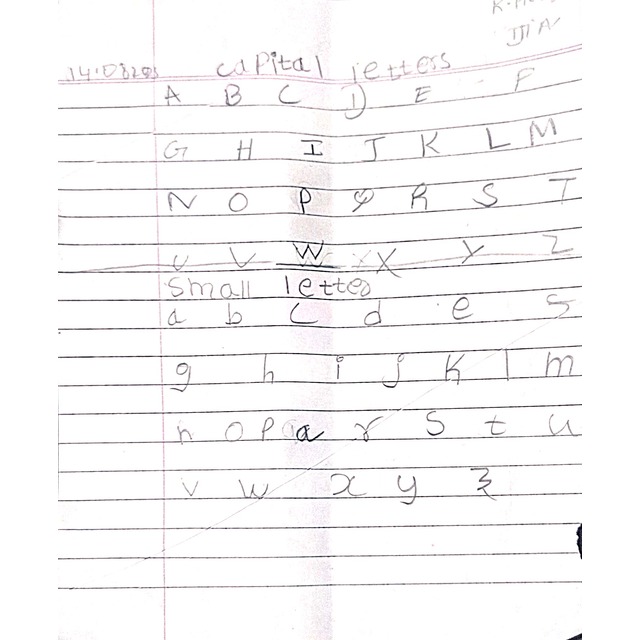 caPital letters
A B C D E F
G H I J K L M
N O P Q R S T
U V W X Y Z
Small letter
a b C d e S
g h i j K l m
n O P a r S t u
v w x y z